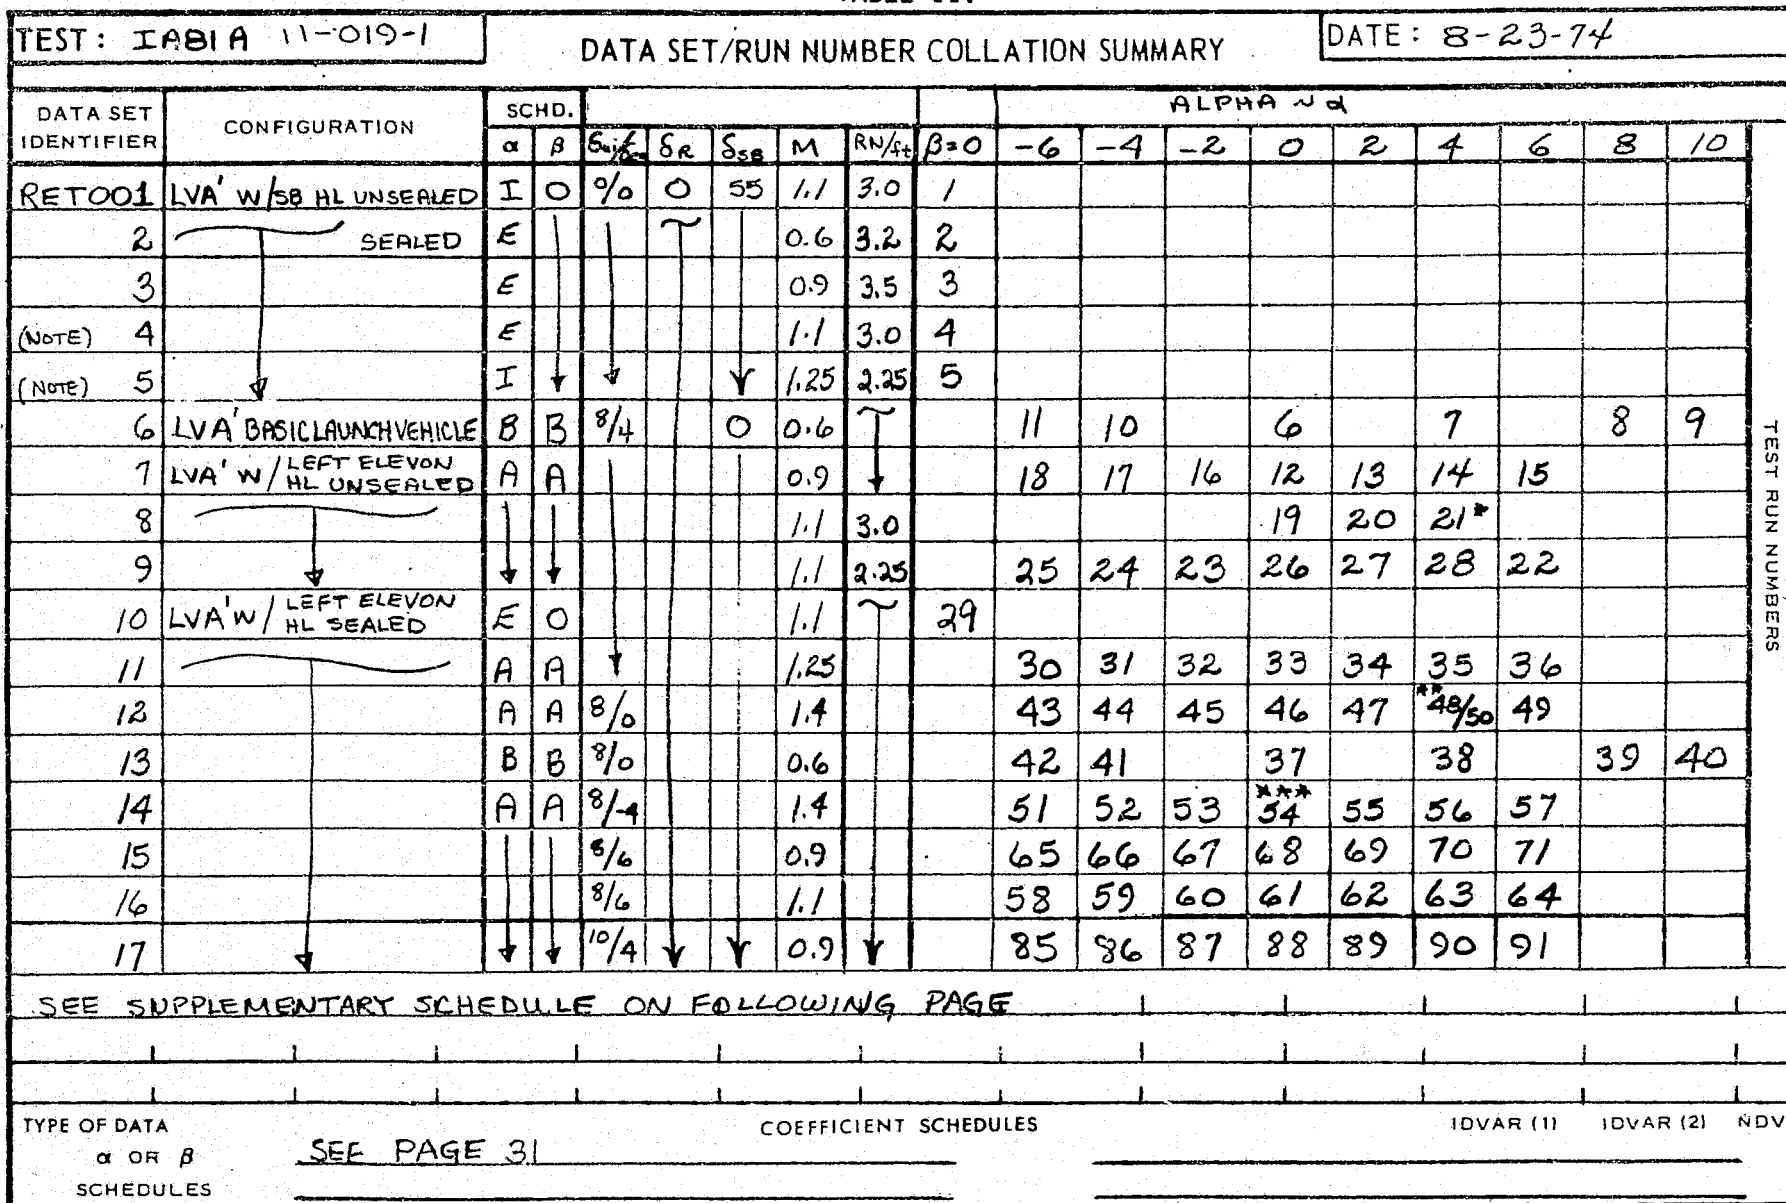 TEST: IA81A 11-019-1
DATA SET/RUN NUMBER COLLATION SUMMARY
DATE: 8-23-74
DATA SET IDENTIFIER CONFIGURATION SCHD. ALPHA ~ α
α β δR δSB M RN/ft β=0 -6 -4 -2 0 2 4 6 8 10
RET001 LVA' W/SB HL UNSEALED I O 0/0 0 55 1.1 3.0 1
2 SEALED E 0.6 3.2 2
3 E 0.9 3.5 3
(NOTE) 4 E 1.1 3.0 4
(NOTE) 5 I 1.25 2.25 5
6 LVA' BASIC LAUNCH VEHICLE B B 8/4 0 0.6 11 10 6 7 8 9
7 LVA' W/ LEFT ELEVON HL UNSEALED A A 0.9 18 17 16 12 13 14 15
8 1.1 3.0 19 20 21*
9 1.1 2.25 25 24 23 26 27 28 22
10 LVA' W/ LEFT ELEVON HL SEALED E O 1.1 29
11 A A 1.25 30 31 32 33 34 35 36
12 A A 8/0 1.4 43 44 45 46 47 **48/50 49
13 B B 8/0 0.6 42 41 37 38 39 40
14 A A 8/-4 1.4 51 52 53 ***54 55 56 57
15 8/6 0.9 65 66 67 68 69 70 71
16 8/6 1.1 58 59 60 61 62 63 64
17 10/4 0.9 85 86 87 88 89 90 91
TEST RUN NUMBERS
SEE SUPPLEMENTARY SCHEDULE ON FOLLOWING PAGE
TYPE OF DATA COEFFICIENT SCHEDULES IDVAR (1) IDVAR (2) NDV
α OR β SEE PAGE 31
SCHEDULES